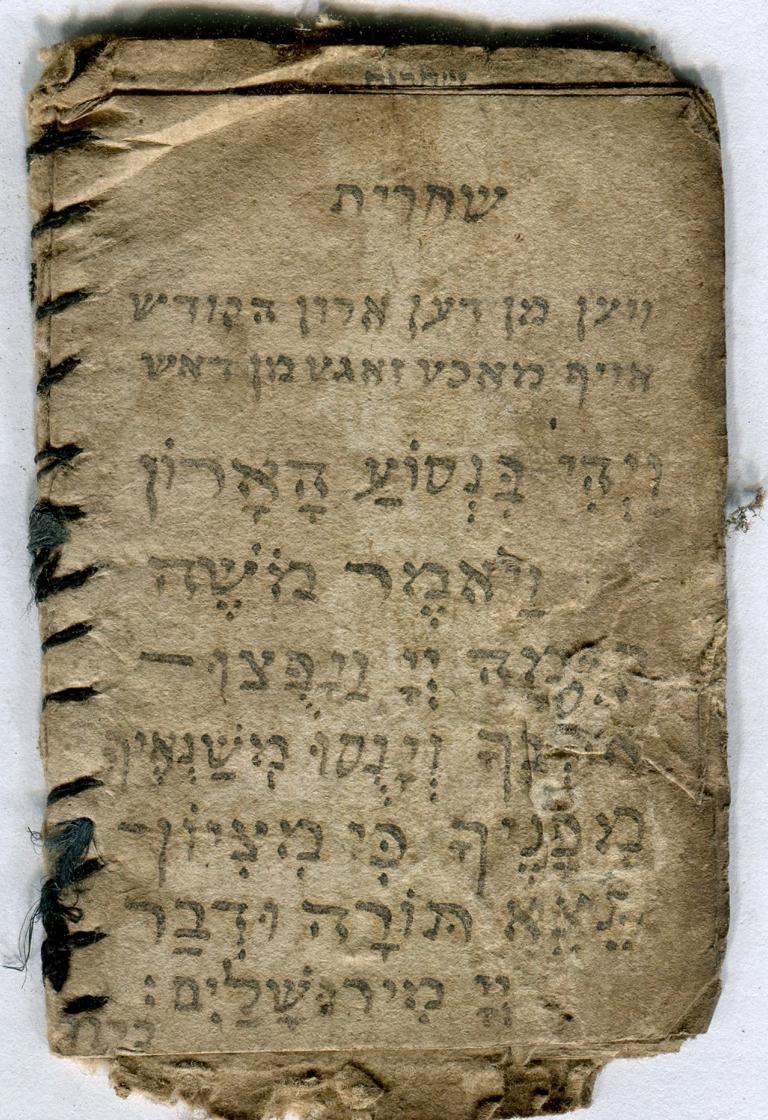 שחרית
שחרית
ווען מן דען ארון הקודש
אויף מאכט זאגט מן דאש
וַיְהִי בִּנְסוֹעַ הָאָרוֹן
וַיֹאמֶר מֹשֶׁה
קוּמָה יְיָ וְיָפֻצוּ —
אֹיְבֶךָ וְיָנֻסוּ מְשַׂנְאֶיךָ
מִפָּנֶיךָ כִּי מִצִיוֹן —
תֵּצֵא תּוֹרָה וּדְבַר
יְיָ מִירוּשָׁלַיִם: